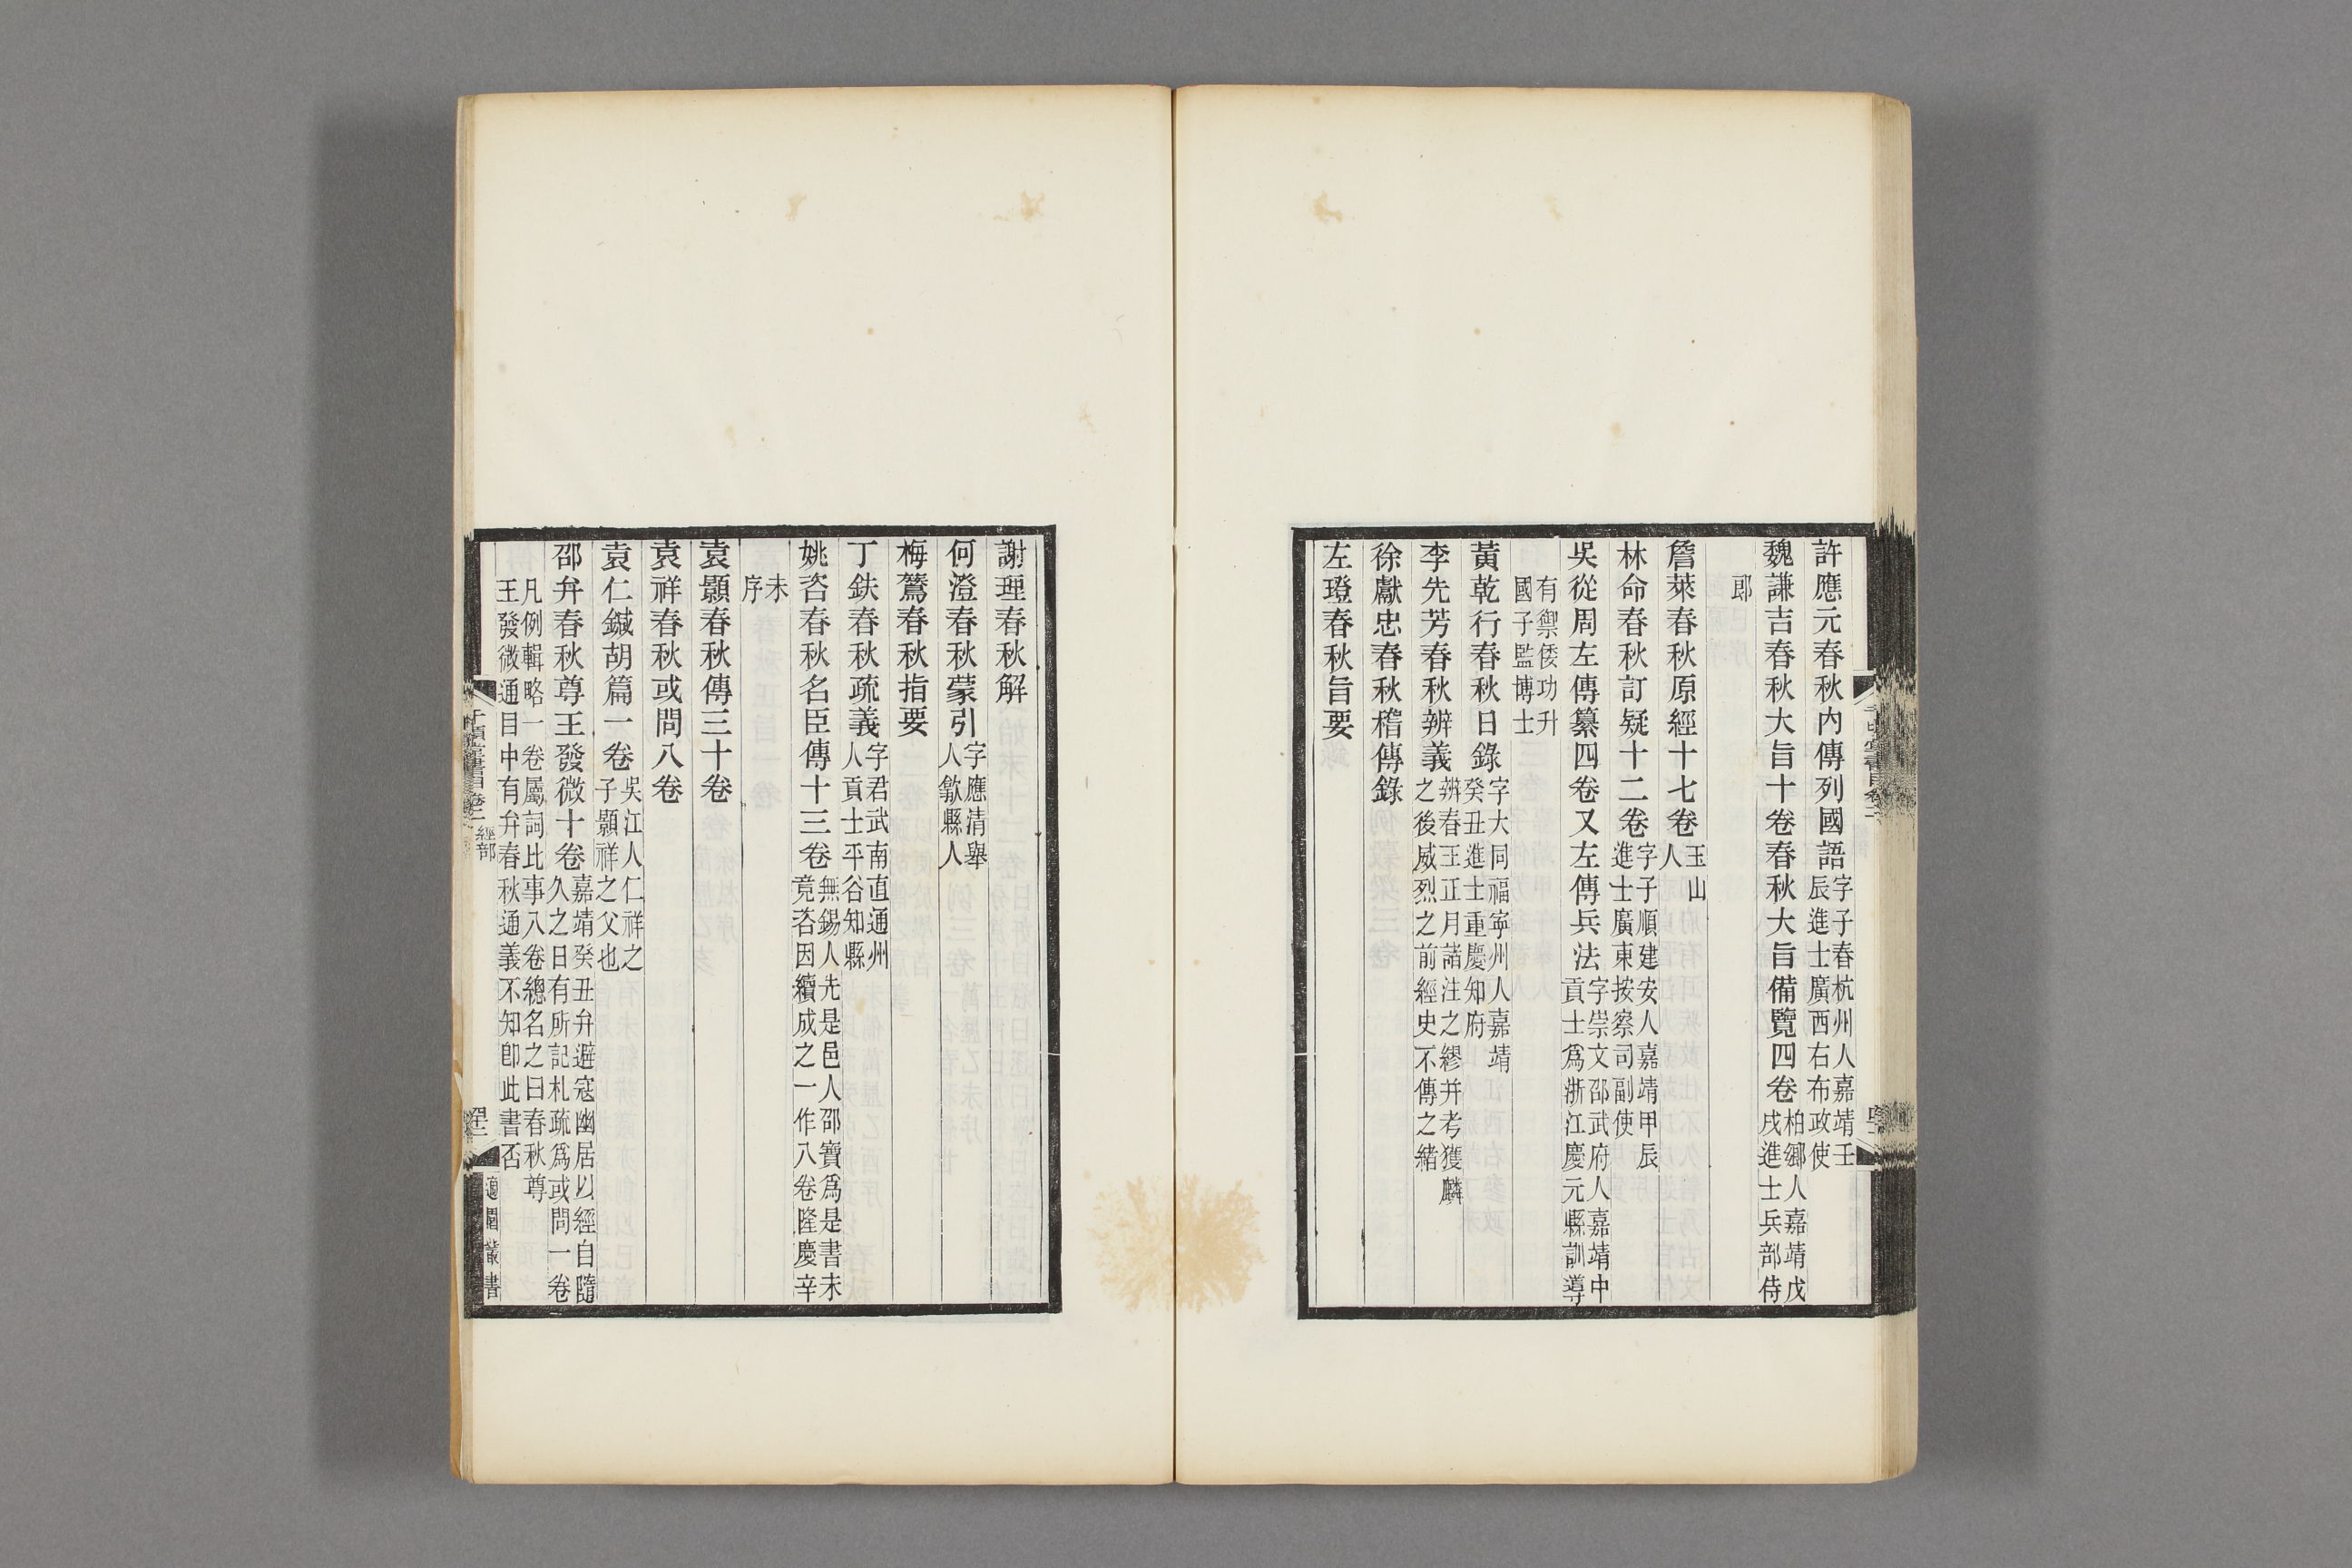 許應元春秋內傳列國語字子春杭州人嘉靖壬辰進士廣西右布政使
魏謙吉春秋大旨十卷春秋大旨備覽四卷柏鄉人嘉靖戊戌進士兵部侍
郎
詹萊春秋原經十七卷玉山人
林命春秋訂疑十二卷字子順建安人嘉靖甲辰進士廣東按察司副使
吳從周左傳纂四卷又左傳兵法字崇文邵武府人嘉靖中貢士爲浙江慶元縣訓導
有禦倭功升國子監博士
黃乾行春秋日錄字大同福寧州人嘉靖癸丑進士重慶知府
李先芳春秋辨義辨春王正月諸注之繆并考獲麟之後威烈之前經史不傳之緒
徐獻忠春秋稽傳錄
左璒春秋旨要
謝理春秋解
何澄春秋蒙引字應清舉人歙縣人
梅鷟春秋指要
丁鈇春秋疏義字君武南直通州人貢士平谷知縣
姚咨春秋名臣傳十三卷無錫人先是邑人邵寶爲是書未竟咨因續成之一作八卷隆慶辛
未序
袁顥春秋傳三十卷
袁祥春秋或問八卷
袁仁鍼胡篇一卷吳江人仁祥之子顥祥之父也
邵弁春秋尊王發微十卷嘉靖癸丑弁避寇幽居以經自隨久之日有所記札疏爲或問一卷
凡例輯略一卷屬詞比事八卷總名之曰春秋尊王發微通目中有弁春秋通義不知卽此書否
千頃堂書目卷二
經部
適園叢書